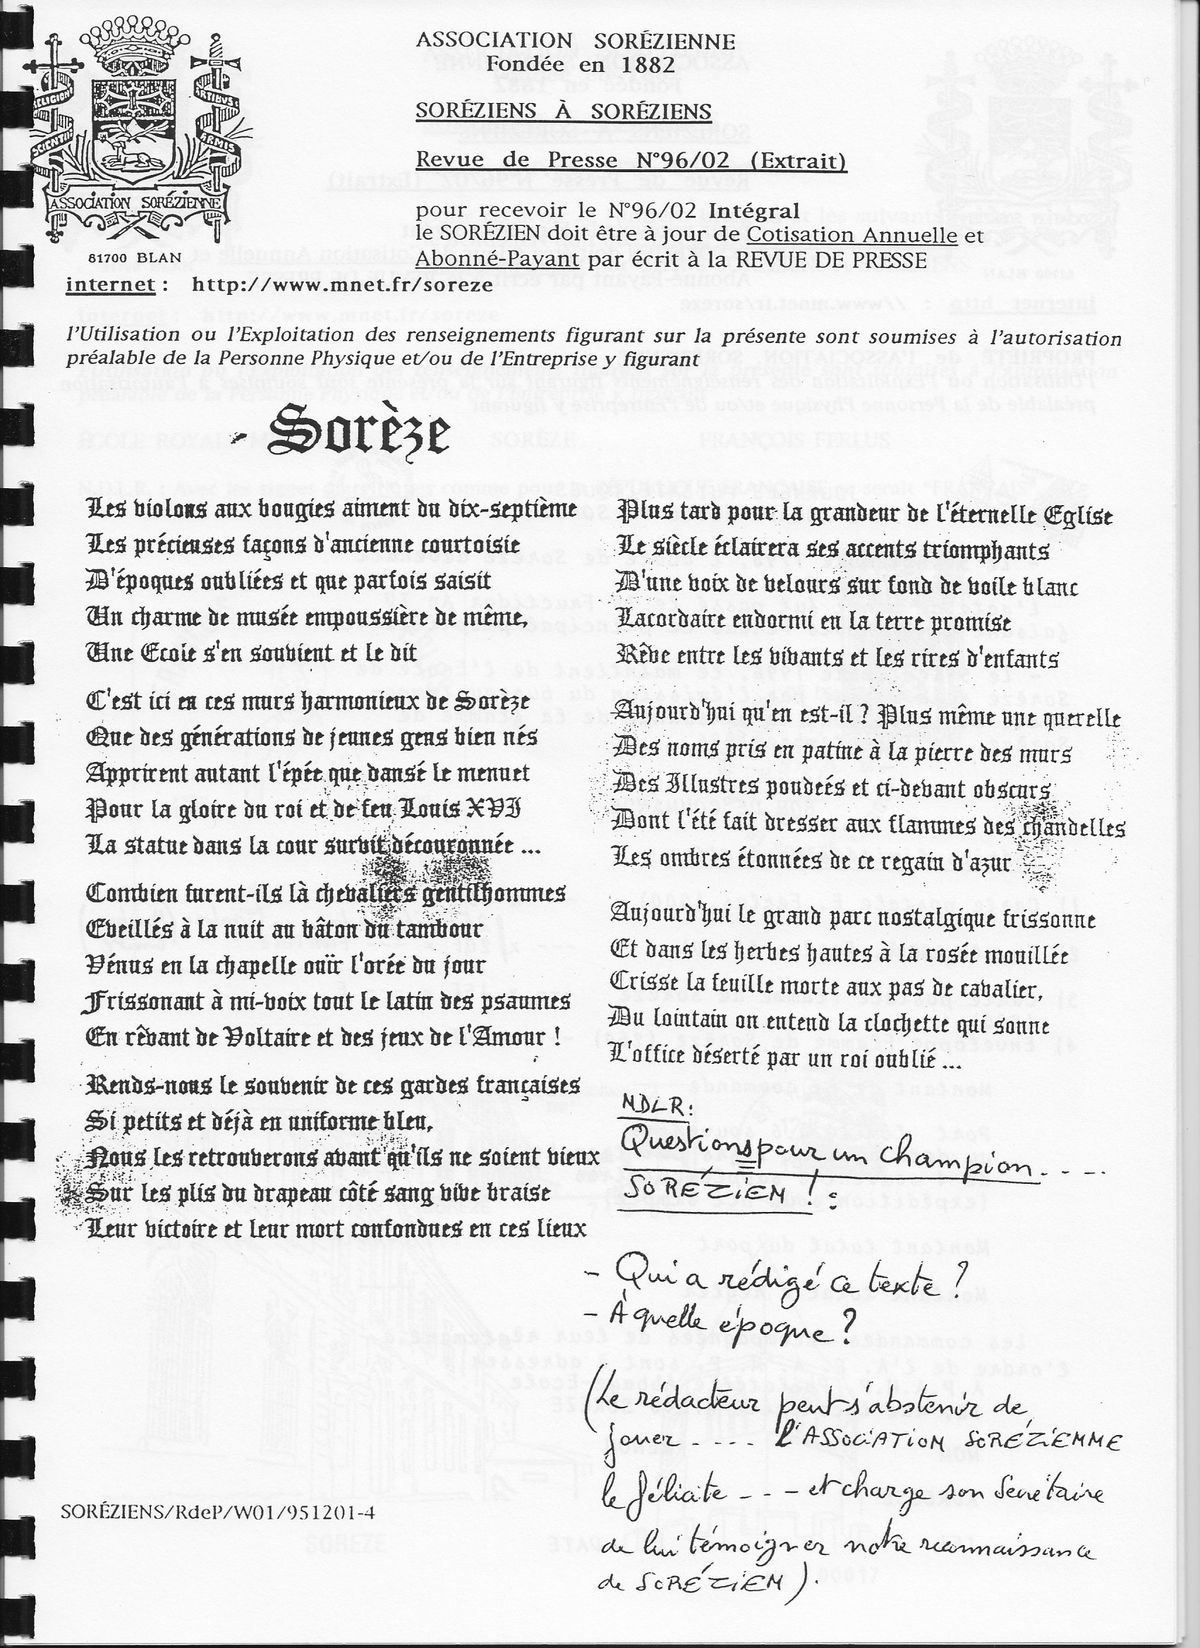 RELIGION
SCIENTIÆ
ARTIBUS
ARMIS
ASSOCIATION SORÉZIENNE
81700 BLAN
ASSOCIATION SORÉZIENNE
Fondée en 1882
SORÉZIENS À SORÉZIENS
Revue de Presse N°96/02 (Extrait)
pour recevoir le N°96/02 Intégral
le SORÉZIEN doit être à jour de Cotisation Annuelle et
Abonné-Payant par écrit à la REVUE DE PRESSE
internet : http://www.mnet.fr/soreze
l'Utilisation ou l'Exploitation des renseignements figurant sur la présente sont soumises à l'autorisation
préalable de la Personne Physique et/ou de l'Entreprise y figurant
Sorèze
Les violons aux bougies aiment du dix-septième
Les précieuses façons d'ancienne courtoisie
D'époques oubliées et que parfois saisit
Un charme de musée empoussière de même,
Une Ecole s'en souvient et le dit
C'est ici en ces murs harmonieux de Sorèze
Que des générations de jeunes gens bien nés
Apprirent autant l'épée que dansé le menuet
Pour la gloire du roi et de feu Louis XVI
La statue dans la cour survit découronnée ...
Combien furent-ils là chevaliers gentilhommes
Eveillés à la nuit au bâton du tambour
Vénus en la chapelle ouïr l'orée du jour
Frissonant à mi-voix tout le latin des psaumes
En rêvant de Voltaire et des jeux de l'Amour !
Rends-nous le souvenir de ces gardes françaises
Si petits et déjà en uniforme bleu,
Nous les retrouverons avant qu'ils ne soient vieux
Sur les plis du drapeau côté sang vive braise
Leur victoire et leur mort confondues en ces lieux
Plus tard pour la grandeur de l'éternelle Eglise
Le siècle éclairera ses accents triomphants
D'une voix de velours sur fond de voile blanc
Lacordaire endormi en la terre promise
Rêve entre les vivants et les rires d'enfants
Aujourd'hui qu'en est-il ? Plus même une querelle
Des noms pris en patine à la pierre des murs
Des Illustres poudeés et ci-devant obscurs
Dont l'été fait dresser aux flammes des chandelles
Les ombres étonnées de ce regain d'azur
Aujourd'hui le grand parc nostalgique frissonne
Et dans les herbes hautes à la rosée mouillée
Crisse la feuille morte aux pas de cavalier,
Du lointain on entend la clochette qui sonne
L'office déserté par un roi oublié ...
NDLR:
Questions pour un champion....
SORÉZIEN ! :
- Qui a rédigé ce texte ?
- À quelle époque ?
(Le rédacteur peut s'abstenir de
jouer .... L'ASSOCIATION SORÉZIENNE
le félicite - - - et charge son Secrétaire
de lui témoigner notre reconnaissance
de SORÉZIEN).
SORÉZIENS/RdeP/W01/951201-4